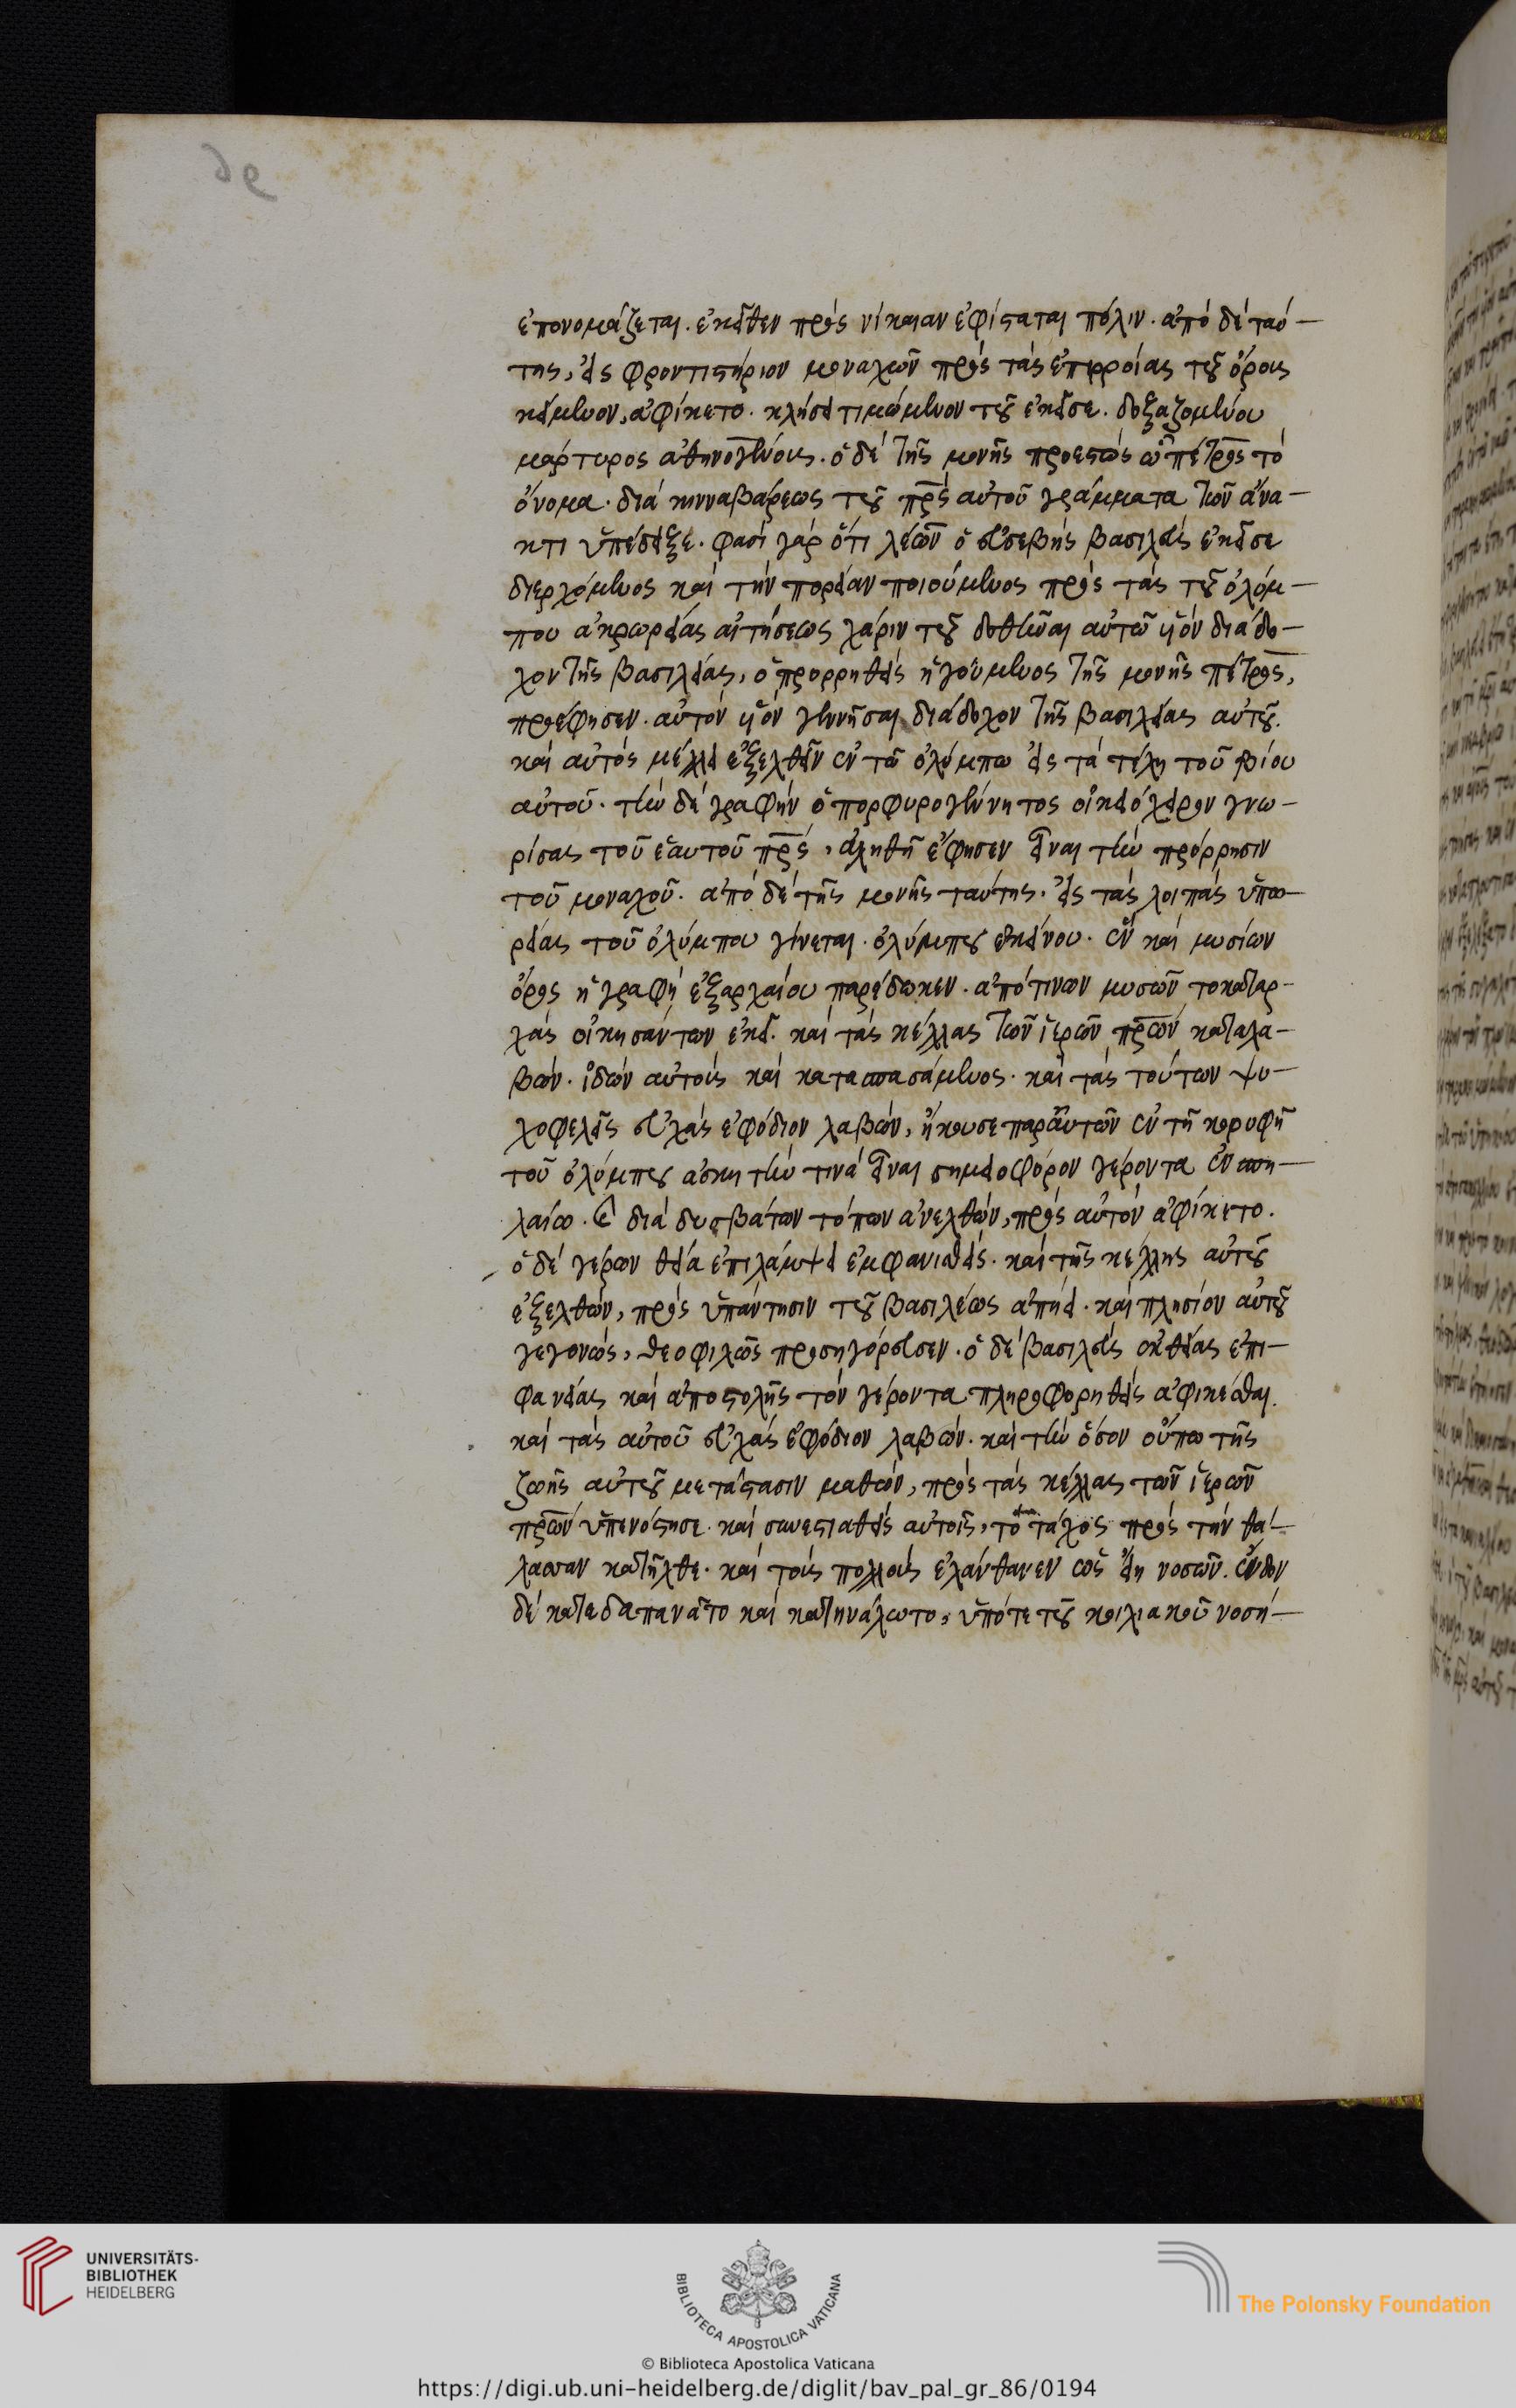 ἐπονομάζεται. ἐκεῖθεν πρὸς νίκαιαν ἐφίσταται πόλιν. ἀπὸ δὲ ταύ-
της, εἰς φροντιστήριον μοναχῶν πρὸς τὰς ἐπιρροίας τοῦ ὄρους
κείμενον, ἀφίκετο. κλήσει τιμώμενον τοῦ ἐκεῖσε. δοξαζομένου
μάρτυρος ἀθηνογένους. ὁ δὲ τῆς μονῆς προεστὼς ᾧ πέτρος τὸ
ὄνομα. διὰ κινναβάρεως τοῦ πρς αὐτοῦ γράμματα τῶν ἄνα-
κτι ὑπέδειξε. φασὶ γὰρ ὅτι λέων ὁ εὐσεβὴς βασιλεὺς ἐκεῖσε
διερχόμενος καὶ τὴν πορείαν ποιούμενος πρὸς τὰς τοῦ ὀλύμ-
που ἀκρωρείας αἰτήσεως χάριν τοῦ δοθῆναι αὐτῶ υἱὸν διάδο-
χον τῆς βασιλείας, ὁ προρρηθεὶς ἡγούμενος τῆς μονῆς πέτρος,
προέφησεν. αὐτὸν υἱὸν γεννῆσαι διάδοχον τῆς βασιλείας αὐτοῦ.
καὶ αὐτὸς μέλλει ἐξελθεῖν ἐν τῶ ὀλύμπω εἰς τὰ τέλη τοῦ βίου
αὐτοῦ. τὴν δὲ γραφὴν ὁ πορφυρογέννητος οἰκειόχειρον γνω-
ρίσας τοῦ ἑαυτοῦ πρς, ἀληθῆ ἔφησεν εἶναι τὴν πρόρρησιν
τοῦ μοναχοῦ. ἀπὸ δὲ τῆς μονῆς ταύτης. εἰς τὰς λοιπὰς ὑπω-
ρείας τοῦ ὀλύμπου γίνεται. ὀλύμπου ἐκείνου. ὃν καὶ μυσίων
ὄρος ἡ γραφὴ ἐξαρχαίου παρέδωκεν. ἀπότινων μυσῶν τοκαταρ-
χὰς οἰκησάντων ἐκεῖ. καὶ τὰς κέλλας τῶν ἱερῶν πρων καταλα-
βών. ἰδὼν αὐτοὺς καὶ κατασπασάμενος. καὶ τὰς τούτων ψυ-
χοφελεῖς εὐχὰς ἐφόδιον λαβὼν, ἤκουσε παρἀυτῶν ἐν τῆ κορυφῆ
τοῦ ὀλύμπου ἀσκητὴν τινὰ εἶναι σημειοφόρον γέροντα ἐν σπη-
λαίω. καὶ διὰ δυσβάτων τόπων ἀνελθὼν, πρὸς αὐτὸν ἀφίκετο.
ὁ δὲ γέρων θεία ἐπιλάμψει ἐμφανισθεὶς. καὶ τῆς κέλλης αὐτοῦ
ἐξελθὼν, πρὸς ὑπάντησιν τοῦ βασιλέως ἀπήει. καὶ πλησίον αὐτοῦ
γεγονὼς, θεοφιλῶς προσηγόρευσεν. ὁ δὲ βασιλεὺς ἐκ θείας ἐπι-
φανείας καὶ ἀποστολῆς τὸν γέροντα πληροφορηθεὶς ἀφικέσθαι.
καὶ τὰς αὐτοῦ εὐχὰς ἐφόδιον λαβών. καὶ τὴν ὅσον οὔπω τῆς
ζωῆς αὐτοῦ μετάστασιν μαθὼν, πρὸς τὰς κέλλας τῶν ἱερῶν
πρων ὑπενόστησε. καὶ συνεστιαθεὶς αὐτοῖς, τὸ τάχος πρὸς τὴν θά-
λασσαν κατῆλθε. καὶ τοὺς πολλοὺς ἐλάνθανεν ὡς εἴη νοσῶν. ἔνδον
δὲ κατεδαπανᾶτο καὶ κατηνάλωτο, ὑπότε τοῦ κοιλιακοῦ νοσή-
UNIVERSITÄTS-
BIBLIOTHEK
HEIDELBERG
BIBLIOTECA APOSTOLICA VATICANA
The Polonsky Foundation
© Biblioteca Apostolica Vaticana
https://digi.ub.uni-heidelberg.de/diglit/bav_pal_gr_86/0194